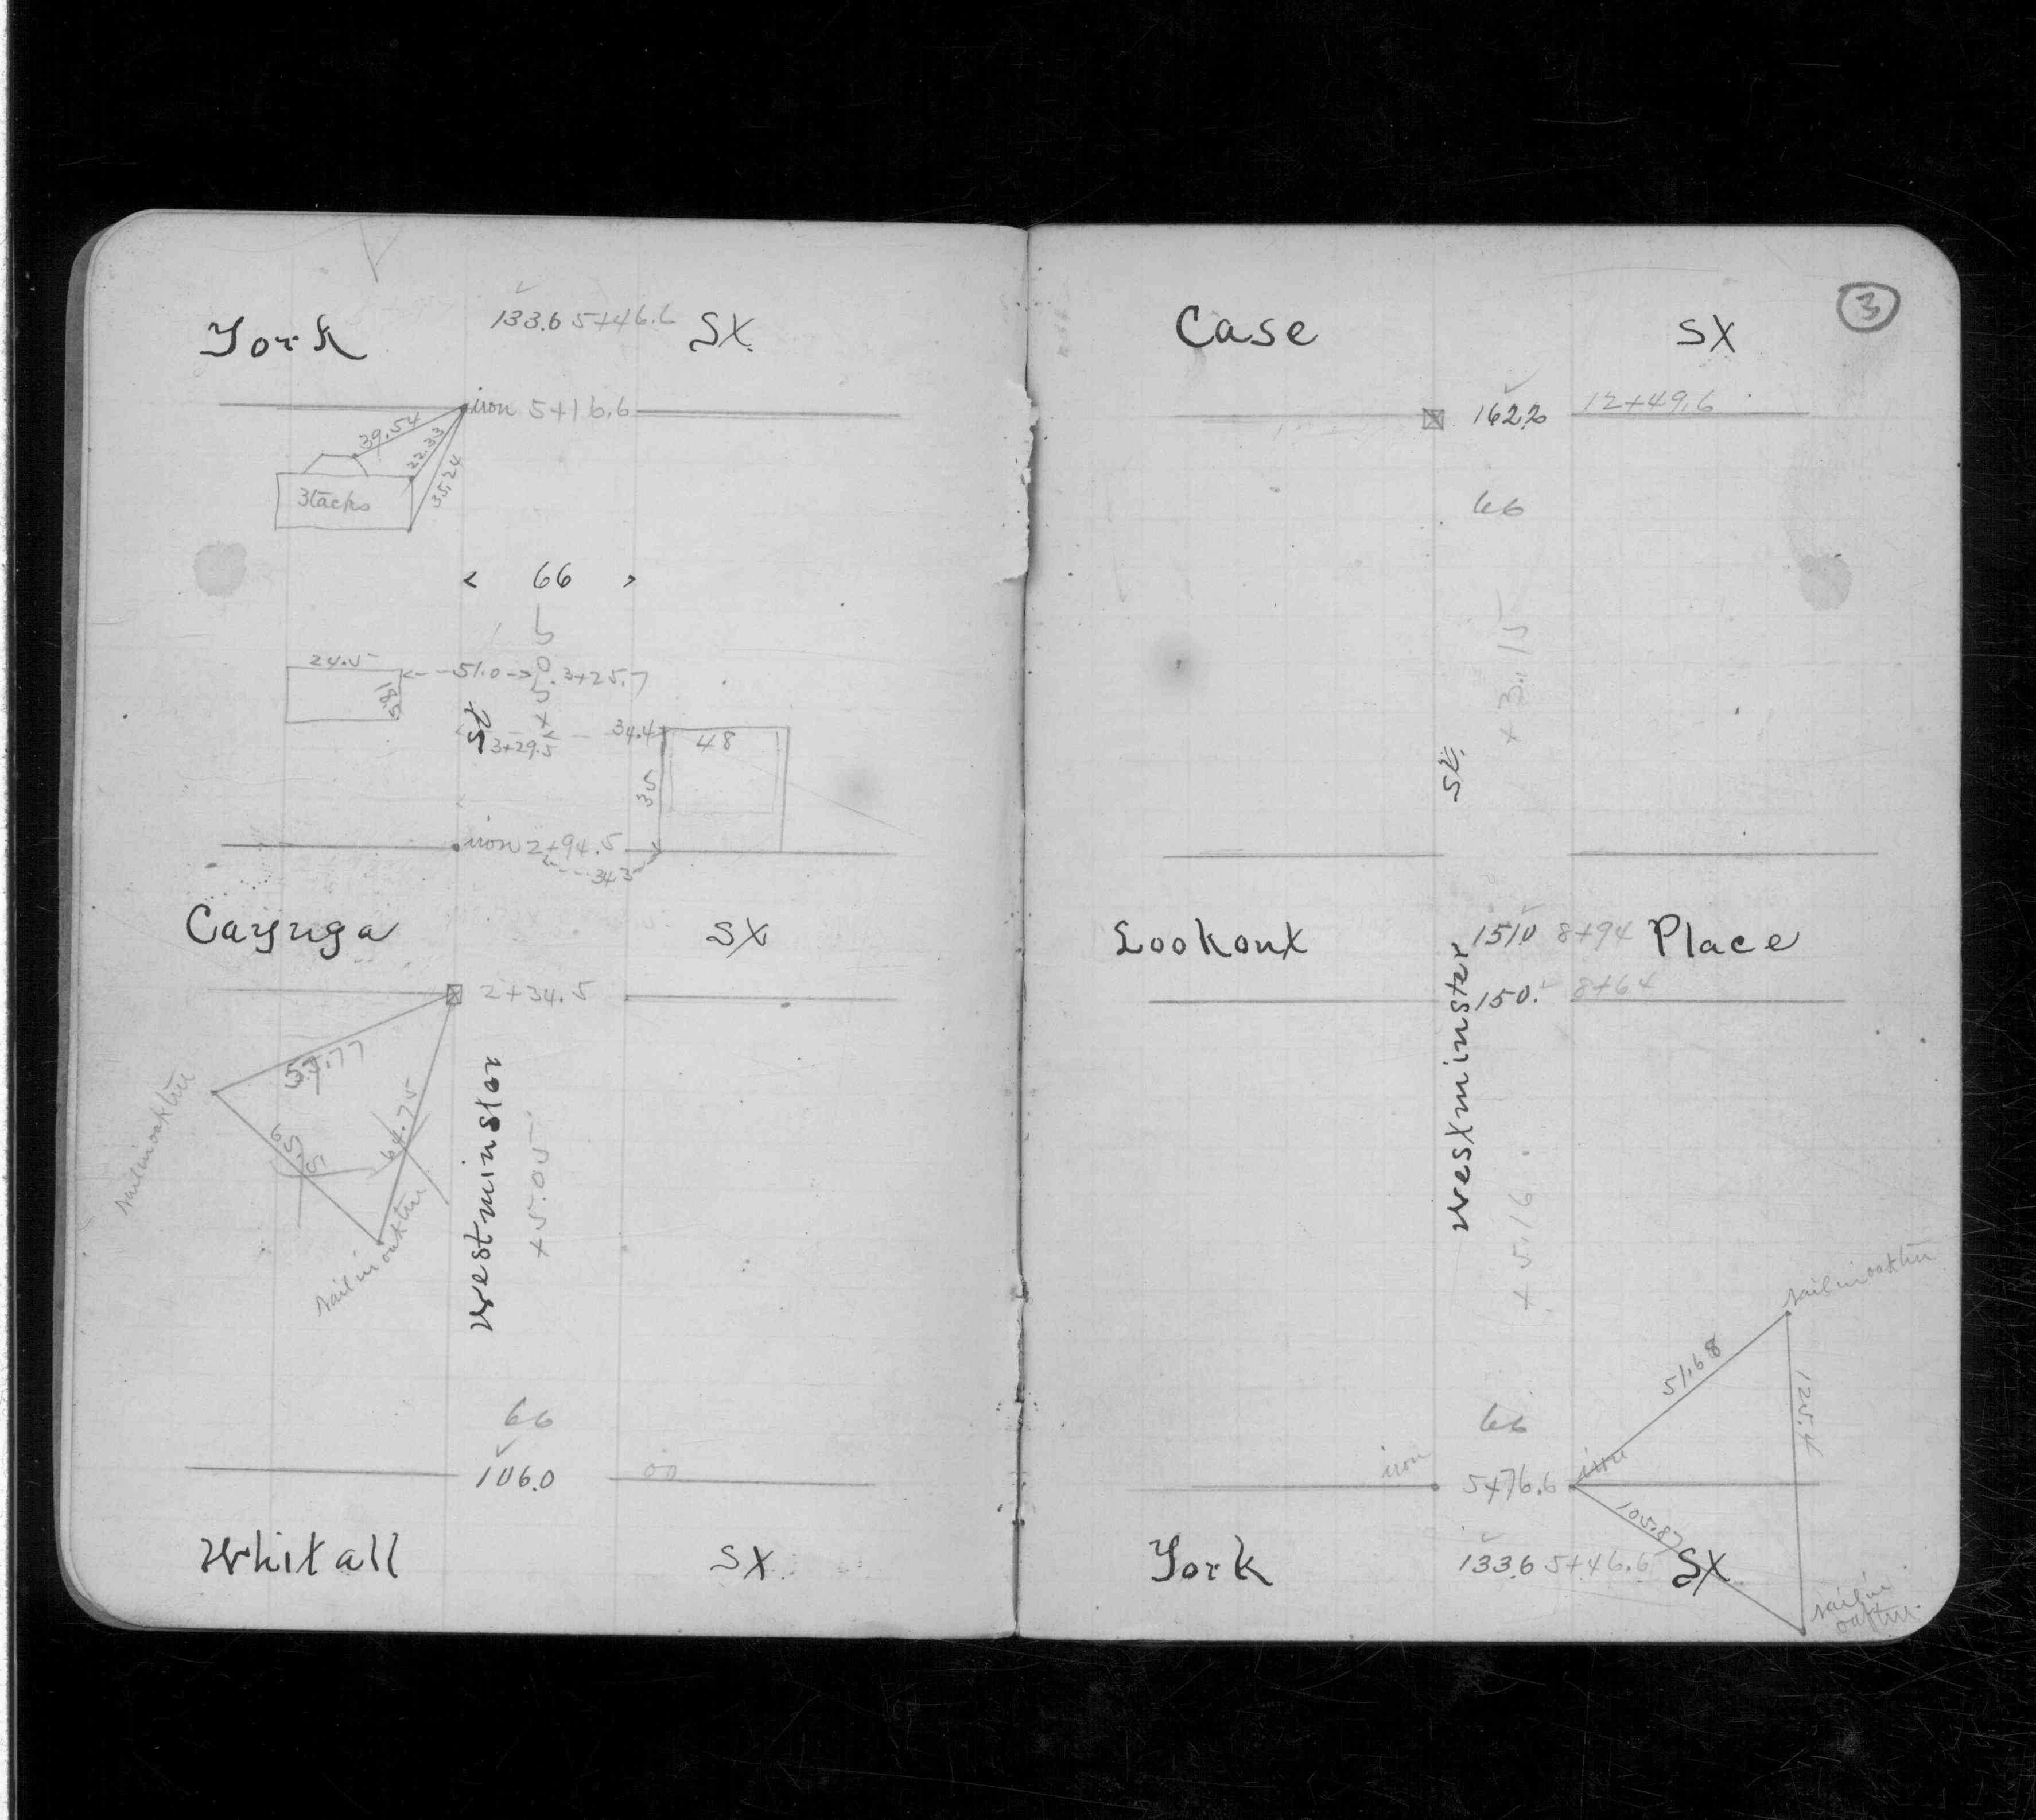 York 133.6 5+46.6 St
iron 5+16.6
39.54
22.33
35.24
3tacks
< 66 >
5.05+
24.5
51.0 3+25.7
St
3+29.5 34.4
48
35
iron 2+94.5
34.3
Cayuga St
2+34.5
64.75
nail in oak tree
nail in oak tree
Westminster
+5.05
66
106.0 00
Whitall St
3
Case St
162.2 12+49.6
66
+3.15
St.
Lookout 151.0 8+94 Place
150. 8+64
Westminster
+5.16
nail in oak tree
51.68
125.4
66
iron 5+76.6 iron
105.87
York 133.6 5+46.6 St
nail in
oak tree